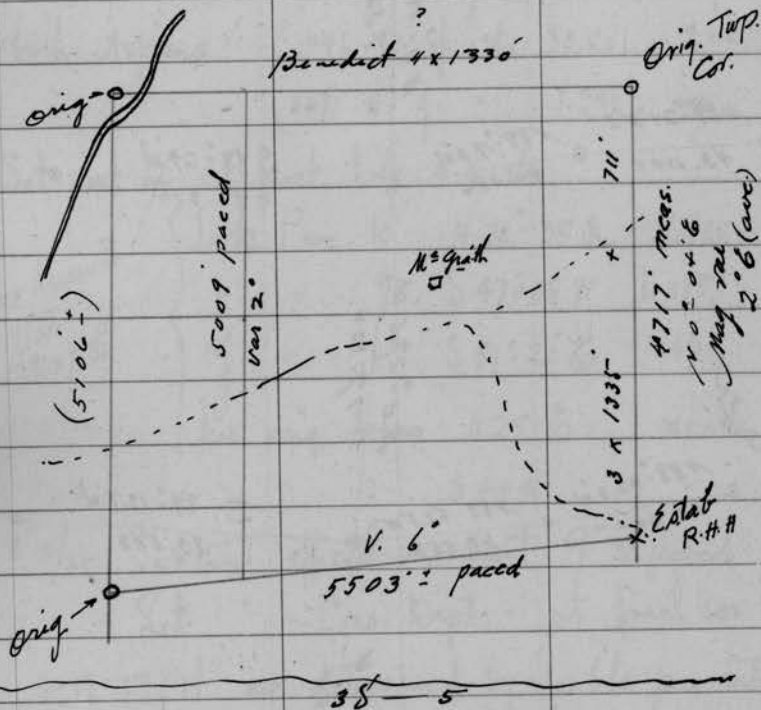 ?
Benedict 4 x 1330'
Orig. Twp.
Cor.
orig
711'
5009' paced
Var 2°
McGrath
(5106' ±)
4717' meas.
N 0° 04' E
Mag var
2° E (ave.)
3 x 1335'
Estab
R.H.H
V. 6°
5503' ± paced
orig
35 — 5